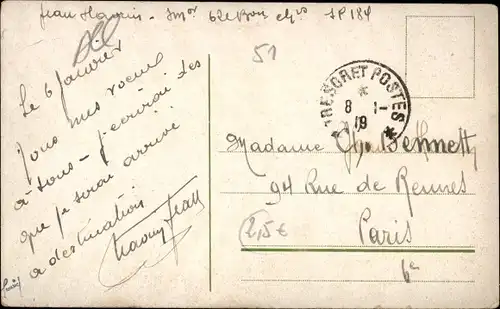 Jean - 62e Bon SP 184
51
Le 6 Janvier
Tous mes voeux
à tous - j'écrirai dès
que je serai arrivé
à destination
Jean
TRESOR ET POSTES
8 1-
19
Madame Bennett
94 Rue de Rennes
Paris
6e
2,5€